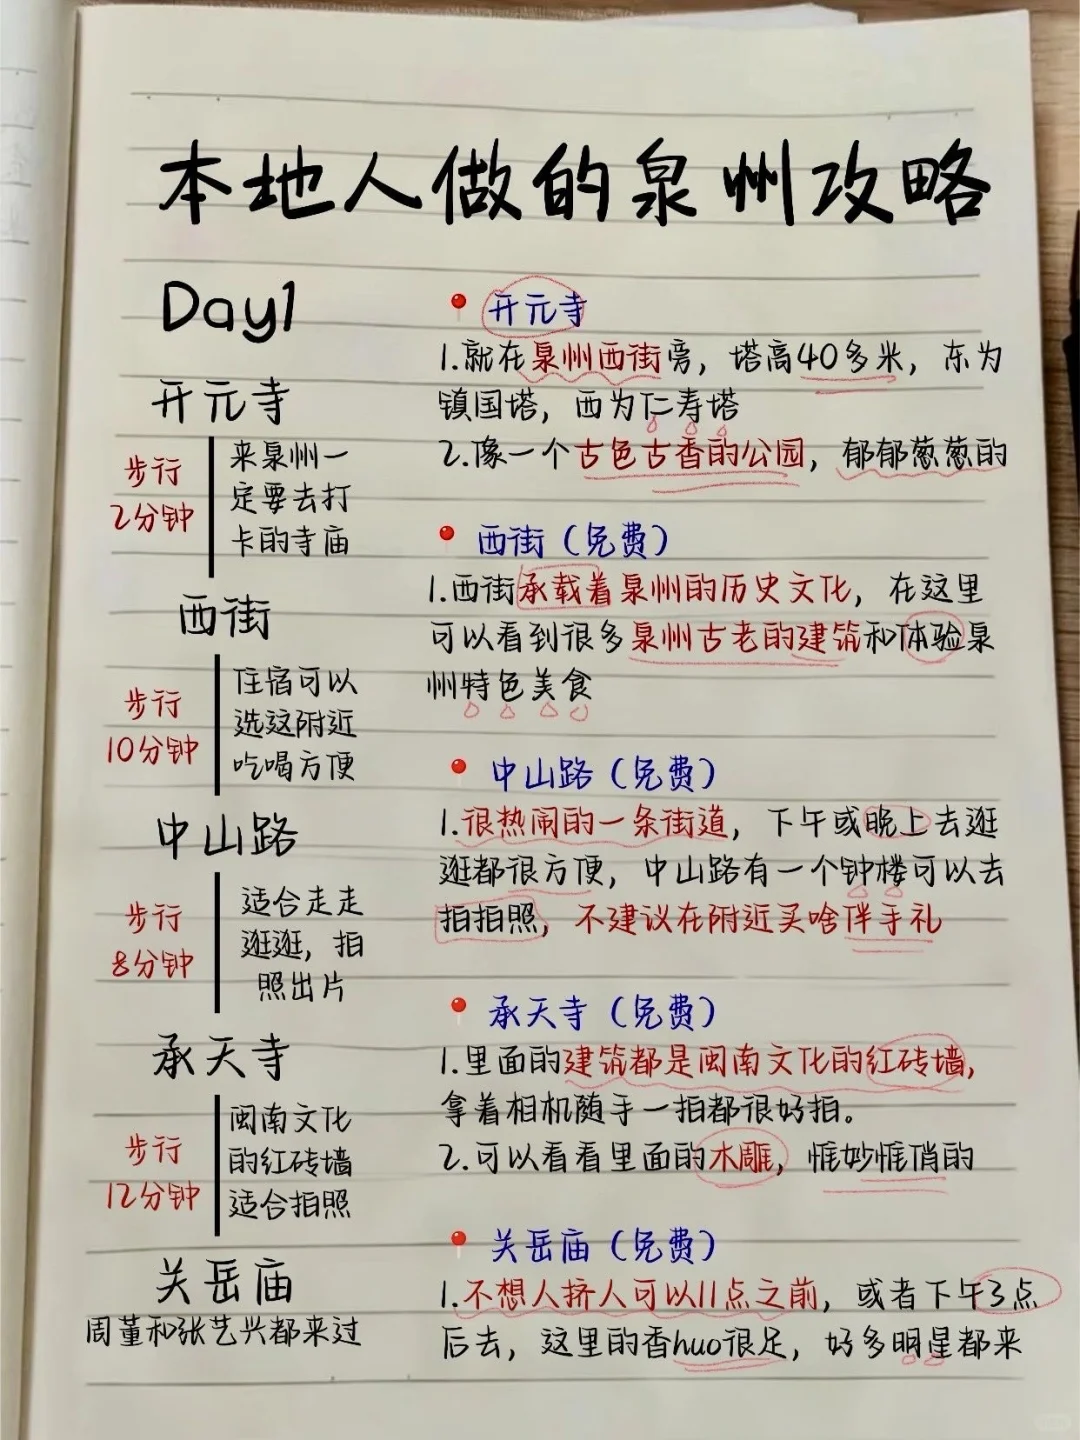 本地人做的泉州攻略
Day1
开元寺
步行
2分钟
来泉州一
定要去打
卡的寺庙
西街
步行
10分钟
住宿可以
选这附近
吃喝方便
中山路
步行
8分钟
适合走走
逛逛，拍
照出片
承天寺
步行
12分钟
闽南文化
的红砖墙
适合拍照
关岳庙
周董和张艺兴都来过
开元寺
1.就在泉州西街旁，塔高40多米，东为
镇国塔，西为仁寿塔
2.像一个古色古香的公园，郁郁葱葱的
西街（免费）
1.西街承载着泉州的历史文化，在这里
可以看到很多泉州古老的建筑和体验泉
州特色美食
中山路（免费）
1.很热闹的一条街道，下午或晚上去逛
逛都很方便，中山路有一个钟楼可以去
拍拍照，不建议在附近买啥伴手礼
承天寺（免费）
1.里面的建筑都是闽南文化的红砖墙，
拿着相机随手一拍都很好拍。
2.可以看看里面的木雕，惟妙惟俏的
关岳庙（免费）
1.不想人挤人可以11点之前，或者下午3点
后去，这里的香huo很足，好多明星都来